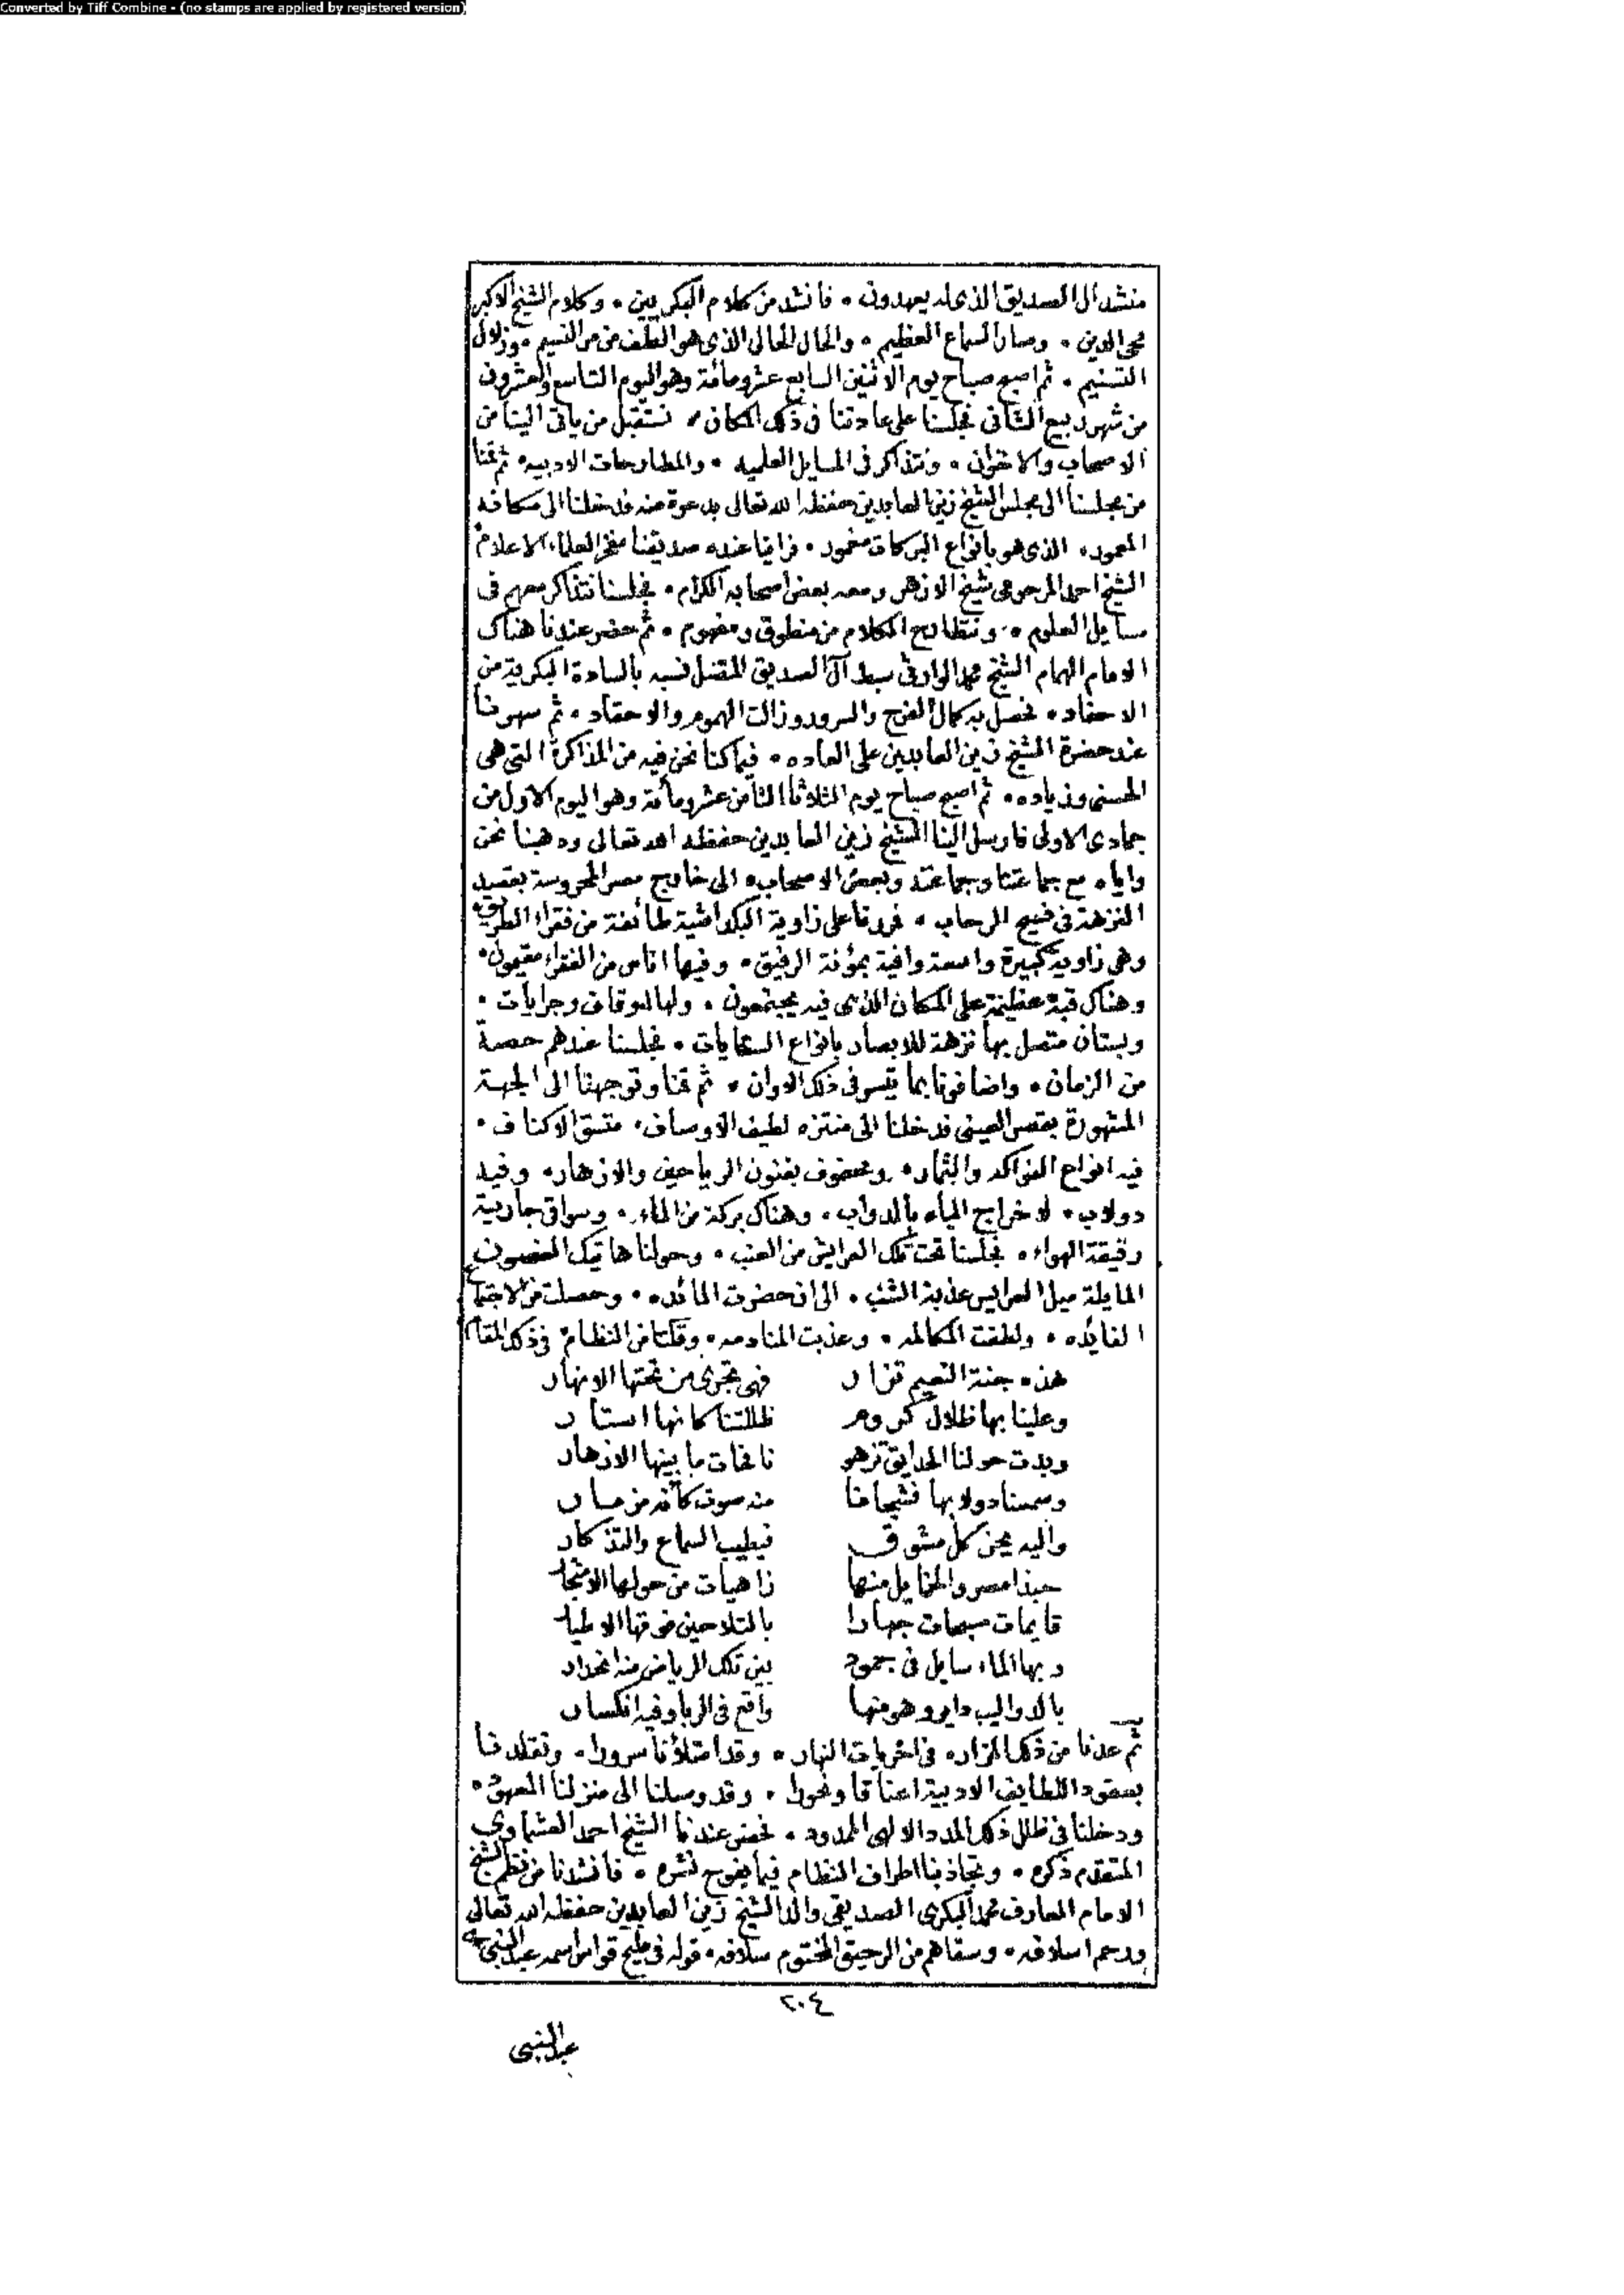 Converted by Tiff Combine - (no stamps are applied by registered version)
منشد ال الصديق الذى له يعهدون • فانشد من كلام البكريين • وكلام الشيخ الاكبر
محي الدين • وصار السماع العظيم • والحال الحالي الذى هو الطف من مر النسيم • وزلال
التسنيم • ثم اصبح صباح يوم الاثنين السابع عشر ومائة وهو اليوم التاسع والعشرون
من شهر ربيع الثانى فجلسنا على عادتنا فى ذلك المكان • نستقبل من ياتى الينا من
الاصحاب والاخوان • ونتذاكر فى المسايل العلميه • والمطارحات الادبيه • ثم قمنا
من مجلسنا الى مجلس الشيخ زين العابدين حفظه الله تعالى بدعوة منه فدخلنا الى مكانه
المعمور • الذى هو بانواع البركات مغمور • فراينا عنده صديقنا مفخر العلماء الاعلام
الشيخ احمد المرحومى شيخ الازهر ومعه بعض اصحابه الكرام • فجلسنا نتذاكر معهم فى
مسايل العلوم • ونتطارح الكلام من منطوق ومفهوم • ثم حضر عندنا هناك
الامام الهمام الشيخ محمد الوارثى سبط آل الصديق المتصل نسبه بالسادة البكرية من
الاحفاد • فحصل به كمال الفرح والسرور وزالت الهموم والاحقاد • ثم سهرنا
عند حضرة الشيخ زين العابدين على العاده • فيما كنا نحن فيه من المذاكرة التى هى
الحسنى وزياده • ثم اصبح صباح يوم الثلاثا الثامن عشر ومائة وهو اليوم الاول من
جمادى الاولى فارسل الينا الشيخ زين العابدين حفظه الله تعالى وذهبنا نحن
واياه مع جماعتنا وجماعته وبعض الاصحاب • الى خارج مصر المحروسة بقصد
النزهة فى فسيح الرحاب • فمررنا على زاوية البكداشية طائفة من فقراء الطريق
وهى زاوية كبيرة واسعة وافية بمؤنة الرفيق • وفيها اناس من الفقراء مقيمون •
وهناك قبة عظيمة على المكان الذى فيه يجتمعون • ولها اوقاف وجرايات •
وبستان متصل بها نزهة للابصار بانواع السقايات • فجلسنا عندهم حصة
من الزمان • واضافونا بما تيسر فى ذلك الاوان • ثم قمنا وتوجهنا الى الجهة
المشهورة بقصر العينى فدخلنا الى منتزه لطيف الاوصاف • متسق الاكناف •
فيه انواع الفواكه والثمار • ومحفوف بفنون الرياحين والازهار • وفيه
دولاب • لاخراج المياه بالدواب • وهناك بركة من الماء • وسواق جارية
رقيقة الهواء • فجلسنا تحت تلك العرايش من العنب • وحولنا هاتيك الغصون
المايلة ميل العرايس عذبة الشنب • الى ان حضرت المائده • وحصلت من الاجتماع
الفايده • ولطفت المكالمه • وعذبت المنادمه • وقلنا من النظام فى ذلك المقام
هذه جنة النعيم تزار فهى تجرى من تحتها الانهار
وعلينا بها ظلال كروم ظللتنا كانها استار
وبدت حولنا الحدايق تزهو نافحات ما بينها الازهار
وسمعنا دولابها فشجانا منه صوت كأنه مزمار
واليه يحن كل مشوق فيطيب السماع والتذكار
حبذا مصر والخمايل منها زاهيات من حولها الاشجار
قايمات مسبحات جهارا بالتلاحين فوقها الاطيار
وبها الماء سايل فى جمود بين تلك الرياض منه انحدار
بالدواليب داير وهو منها واقع فى الربا وفيه انكسار
ثم عدنا من ذلك المزار • فى اخريات النهار • وقد امتلأنا سرورا • وتقلدنا
بعقود اللطايف الادبية اعناقا ونحورا • وقد وصلنا الى منزلنا المعهود •
ودخلنا فى ظلل ذلك المدد الالهى الممدود • فحضر عندنا الشيخ احمد العشماوي
المتقدم ذكره • وتجاذبنا اطراف النظام فيما يفوح نشره • فانشدنا من نظم الشيخ
الامام العارف محمد البكرى الصديقى والد الشيخ زين العابدين حفظه الله تعالى
ورحم اسلافه • وسقاهم من الرحيق المختوم سلافه • قوله فى مليح قواس اسمه عبد النبى
٢٠٤
عبد النبى